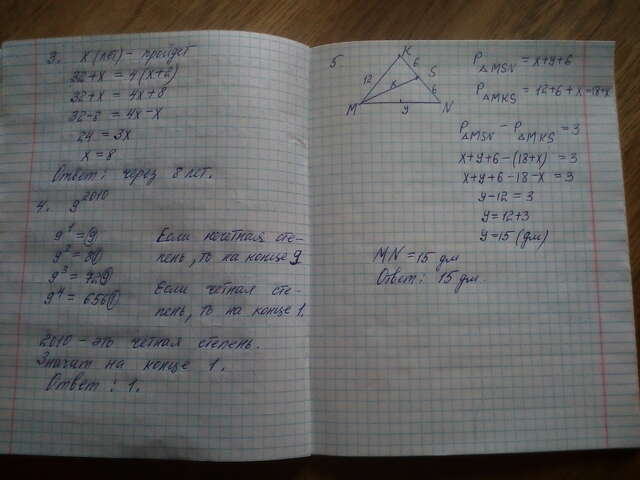 3. x (лет) - пройдет
32+x = 4(x+2)
32+x = 4x+8
32-8 = 4x-x
24 = 3x
x = 8
Ответ: через 8 лет.
4. 9^2010
9^1 = 9
9^2 = 81
9^3 = 729
9^4 = 6561
Если нечетная сте-
пень, то на конце 9
Если четная сте-
пень, то на конце 1.
2010 - это четная степень.
Значит на конце 1.
Ответ: 1.
5
K
12
6
x
S
6
M
y
N
P△MSN = x+y+6
P△MKS = 12+6+x=18+x
P△MSN - P△MKS = 3
x+y+6-(18+x) = 3
x+y+6-18-x = 3
y-12 = 3
y = 12+3
y = 15 (дм)
MN = 15 дм
Ответ: 15 дм.